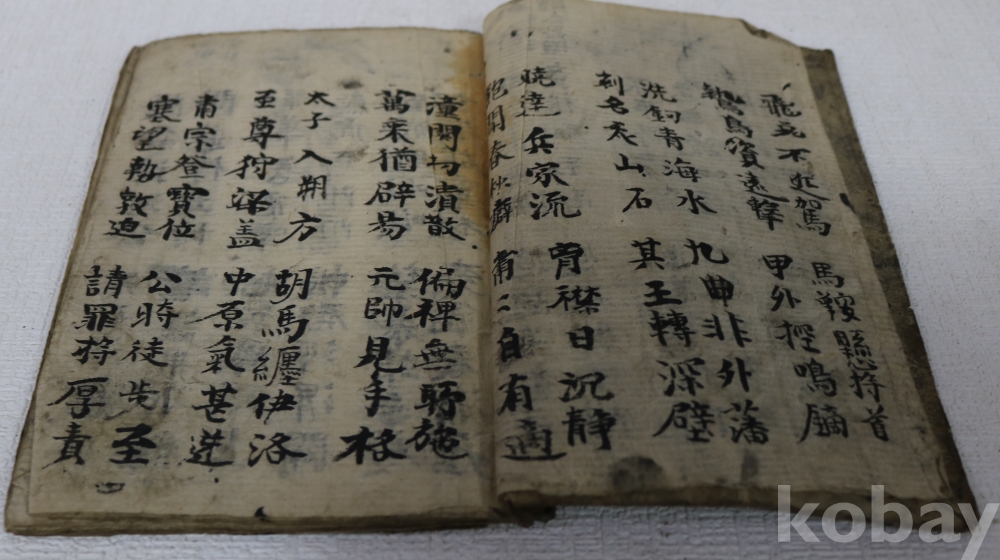 飛兎不近駕
鷙鳥資遠擊
馬鞍懸將首
甲外控鳴鏑
洗釰青海水
刻名天山石
九曲非外藩
其王轉深壁
曉達兵家流
飽聞春秋癖
胷襟日沉静
肅二自有適
潼関初潰散
萬乗猶辟易
偏裨無所施
元帥見手格
太子入朔方
至尊狩梁益
胡馬纏伊洛
中原氣甚逆
肅宗登寶位
塞望勢敦迫
公時徒步至
請罪將厚責
kobay